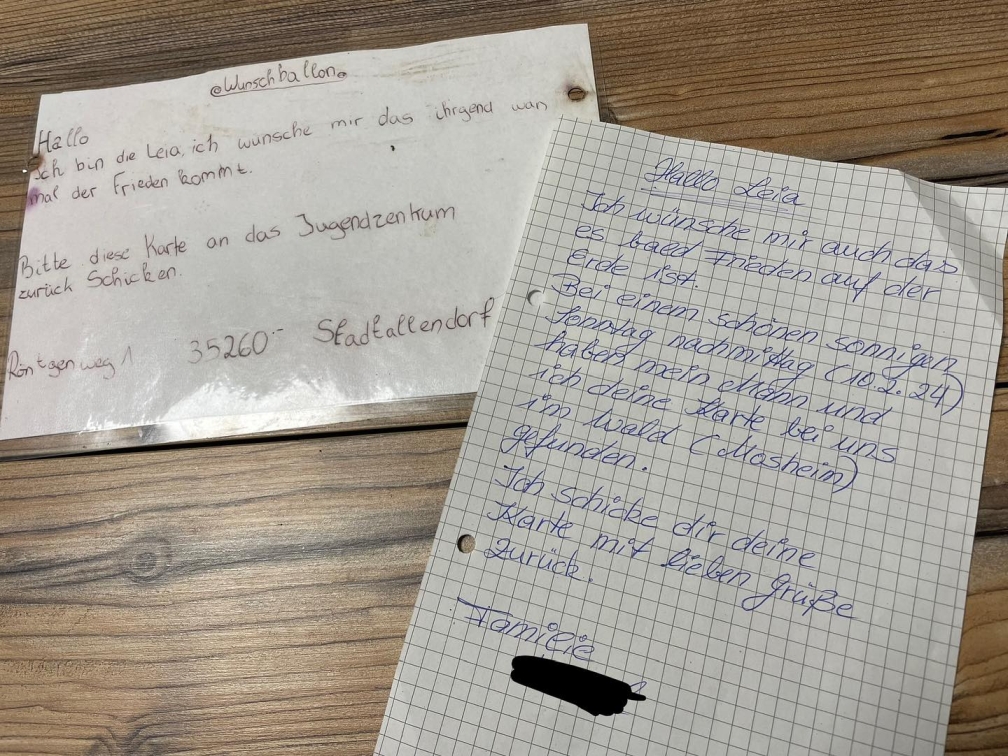 Wunschballon
Hallo
Ich bin die Leia, ich wünsche mir das ihrgend wan
mal der Frieden kommt.
Bitte diese Karte an das Jugendzentrum
zurück Schicken.
Röntgenweg 1 35260 Stadtallendorf
Hallo Leia
Ich wünsche mir auch das
es bald Frieden auf der
Erde ist.
Bei einem schönen sonnigen
Sonntag nachmittag (10.2.24)
haben mein Mann und
ich deine Karte bei uns
im Wald (Mosheim)
gefunden.
Ich schicke dir deine
Karte mit lieben Grüße
zurück.
Familie